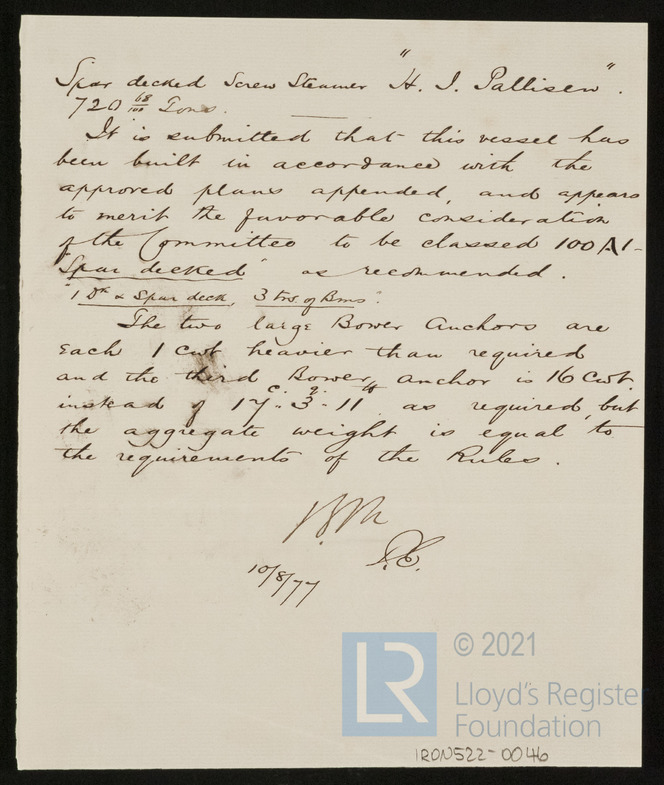 Spar decked Screw Steamer "H. I. Pallisen".
720 68/100 Tons.
It is submitted that this vessel has
been built in accordance with the
approved plans appended, and appears
to merit the favorable consideration
of the Committee to be classed 100A1-
"Spar decked" as recommended.
"1 Dk & Spar deck, 3 trs. of Bms".
The two large Bower Anchors are
Each 1 cwt heavier than required
and the third Bower anchor is 16 cwt.
instead of 17c.. 3q.- 11lb as required, but
the aggregate weight is equal to
the requirements of the Rules.
10/8/77
LR
© 2021
Lloyd's Register
Foundation
IRON522-0046